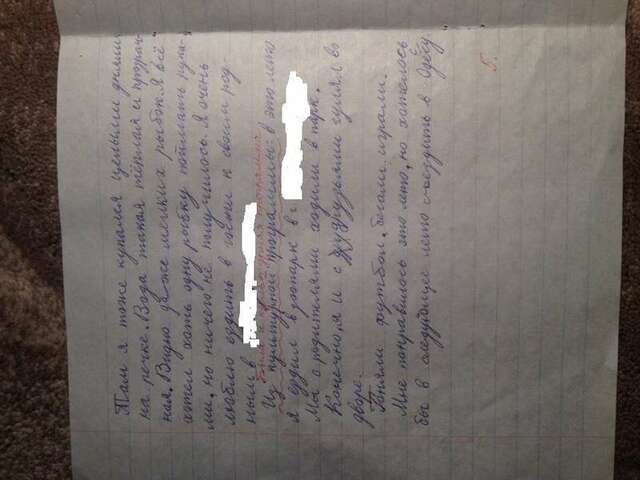 Там я тоже купался целыми днями
на речке. Вода такая тёплая и прозрач
ная. Видно даже мелких рыбок. Я всё
хотел хоть одну рыбку поймать рука
ми, но ничего не получилось. Я очень
люблю ездить в гости к своим род
ным в
Из культурной программы: в это лето
я ездил в зоопарк в г
Мы с родителями ходили в парк.
Конечно, я и с друзьями гулял во
дворе.
Гоняли футбол, бегали, играли.
Мне понравилось это лето, но хотелось
бы в следующее лето съездить в Одессу